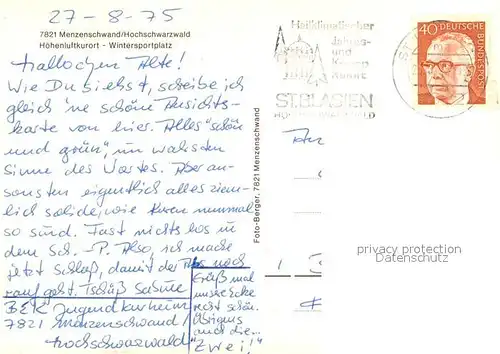 27-8-75
7821 Menzenschwand/Hochschwarzwald
Höhenluftkurort - Wintersportplatz
Hallochen Alte!
Wie Du siehst, schreibe ich
gleich 'ne schöne Ansichts-
karte von hier. Alles "schön
und grün", im wahrsten
Sinne des Wortes. Aber an-
sonsten eigentlich alles ziem-
lich solide, wie Kuren nunmal
so sind. Fast nichts los in
dem Sch. -P. Also, ich mache
jetzt Schluß, damit der
rauf geht. Tschüß
BEK Jugendkurheim
7821 Menzenschwand/
Hochschwarzwald
Grüß mal
unsere Ecke
recht schön.
Übrigens
auch die...
"Zwei!"
Foto-Berger, 7821 Menzenschwand
Heilklimatischer
Jahres-
und
Kneipp
Kurort
ST. BLASIEN
HOCHSCHWARZWALD
40
DEUTSCHE
BUNDESPOST
privacy protection
Datenschutz